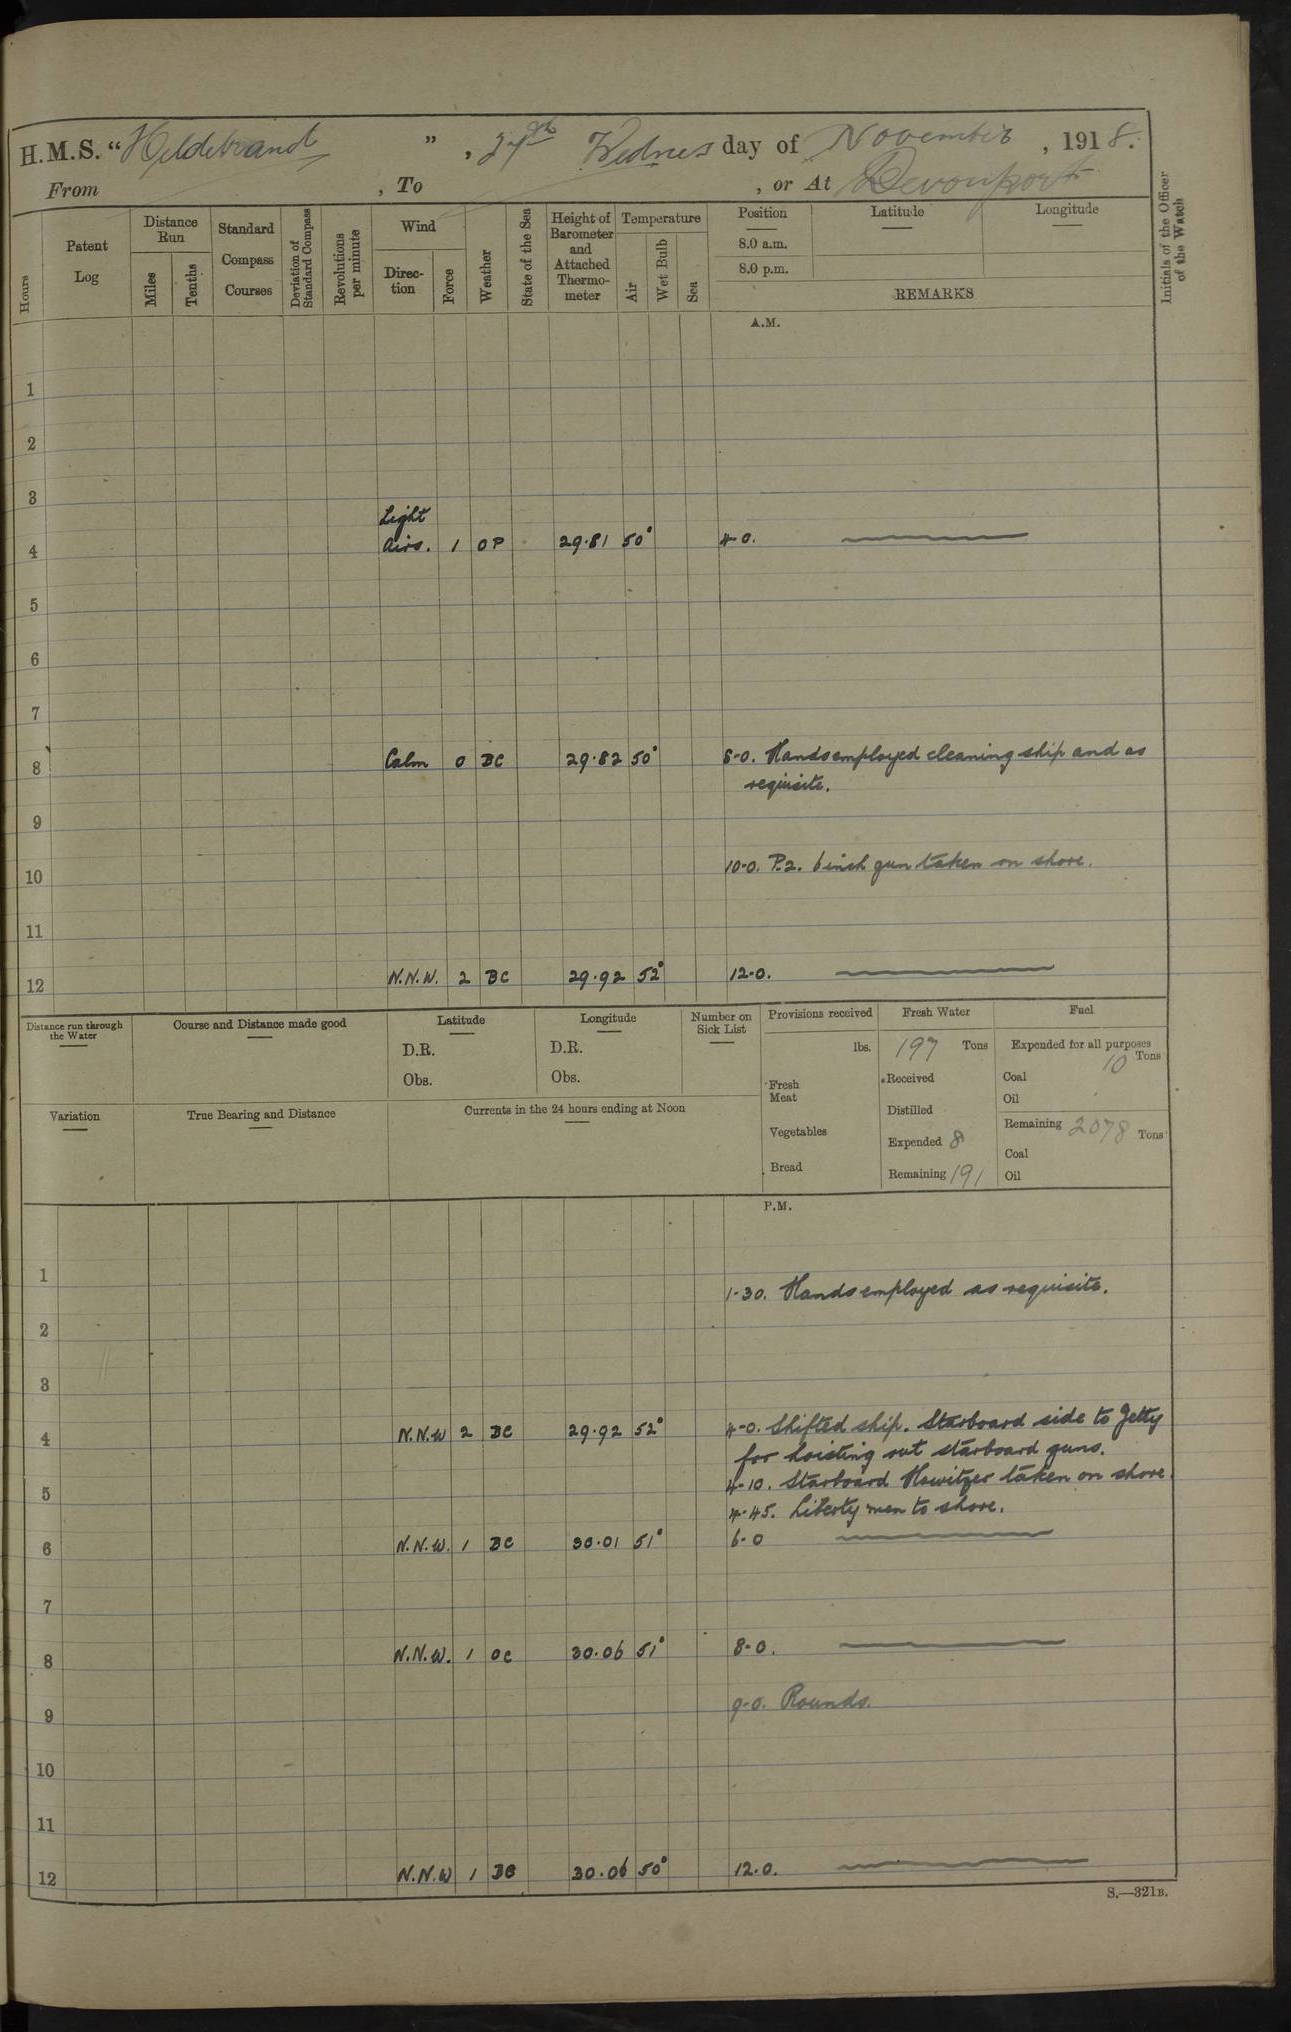 H.M.S. "Hildebrand", 27th Wednesday of November, 1918.
From , To , or At Devonport
Hours
Patent Log
Distance Run
Miles
Tenths
Standard Compass Courses
Deviation of Standard Compass
Revolutions per minute
Wind
Direc-tion
Force
Weather
State of the Sea
Height of Barometer and Attached Thermo-meter
Temperature
Air
Wet Bulb
Sea
Position
8.0 a.m.
8.0 p.m.
Latitude
Longitude
REMARKS
Initials of the Officer of the Watch
A.M.
1
2
3
Light
4 Airs. 1 OP 29.81 50° 4-0.
5
6
7
8 Calm 0 BC 29.82 50° 8-0. Hands employed cleaning ship and as
requisite.
9
10 10-0. P.2. 6 inch gun taken on shore.
11
12 N.N.W. 2 BC 29.92 52° 12-0.
Distance run through the Water
Course and Distance made good
Latitude
D.R.
Obs.
Longitude
D.R.
Obs.
Number on Sick List
Provisions received
lbs.
Fresh Meat
Vegetables
Bread
Fresh Water
197 Tons
Received
Distilled
Expended 8
Remaining 191
Fuel
Expended for all purposes
10 Tons
Coal
Oil
Remaining 2078 Tons
Coal
Oil
Variation
True Bearing and Distance
Currents in the 24 hours ending at Noon
P.M.
1 1-30. Hands employed as requisite.
2
3
4 N.N.W 2 BC 29.92 52° 4-0. Shifted ship. Starboard side to Jetty
for hoisting out starboard guns.
4-10. Starboard Howitzer taken on shore.
5 4-45. Liberty men to shore.
6 N.N.W. 1 BC 30.01 51° 6-0
7
8 N.N.W. 1 OC 30.06 51° 8-0.
9 9-0. Rounds.
10
11
12 N.N.W 1 BC 30.06 50° 12.0.
S.—321B.